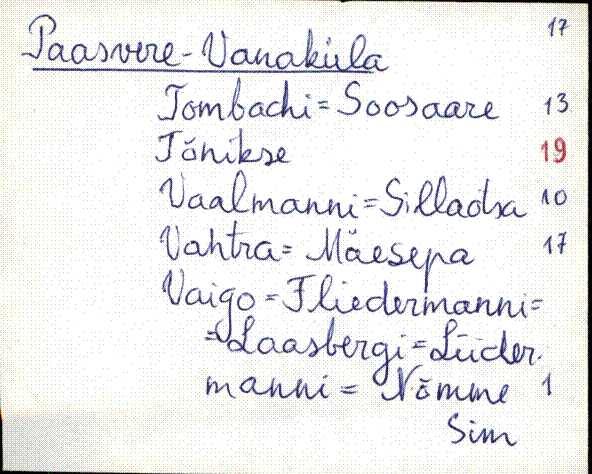 17
Paasvere-Vanaküla
Tombachi = Soosaare 13
Tõnikse 19
Vaalmanni = Sillaotsa 10
Vahtra = Mäesepa 17
Vaigo = Fliedermanni =
= Laasbergi = Lüider-
manni = Nõmme 1
Sim